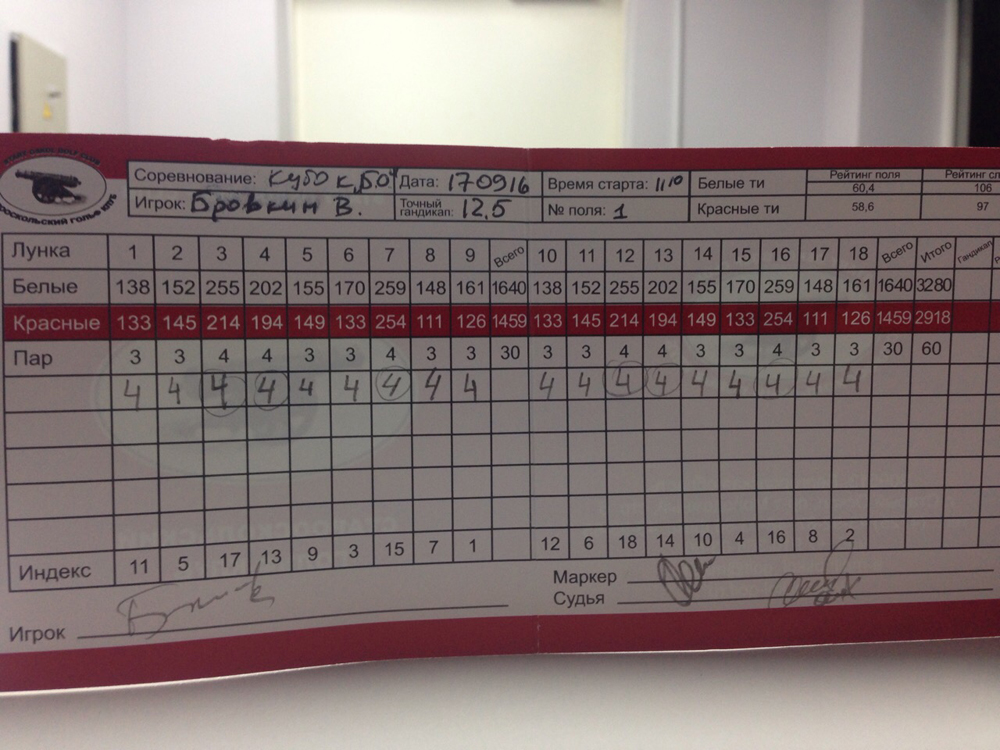 STARY OSKOL GOLF CLUB
СТАРООСКОЛЬСКИЙ ГОЛЬФ КЛУБ
Соревнование: Кубок Б.О. Дата: 170916 Время старта: 11 10 Белые ти Рейтинг поля 60,4 106
Игрок: Бровкин В. Точный гандикап: 12,5 № поля: 1 Красные ти 58,6 97
Лунка 1 2 3 4 5 6 7 8 9 Всего 10 11 12 13 14 15 16 17 18 Всего Итого Гандикап
Белые 138 152 255 202 155 170 259 148 161 1640 138 152 255 202 155 170 259 148 161 1640 3280
Красные 133 145 214 194 149 133 254 111 126 1459 133 145 214 194 149 133 254 111 126 1459 2918
Пар 3 3 4 4 3 3 4 3 3 30 3 3 4 4 3 3 4 3 3 30 60
4 4 4 4 4 4 4 4 4 4 4 4 4 4 4 4 4 4
Индекс 11 5 17 13 9 3 15 7 1 12 6 18 14 10 4 16 8 2
Маркер
Судья
Игрок